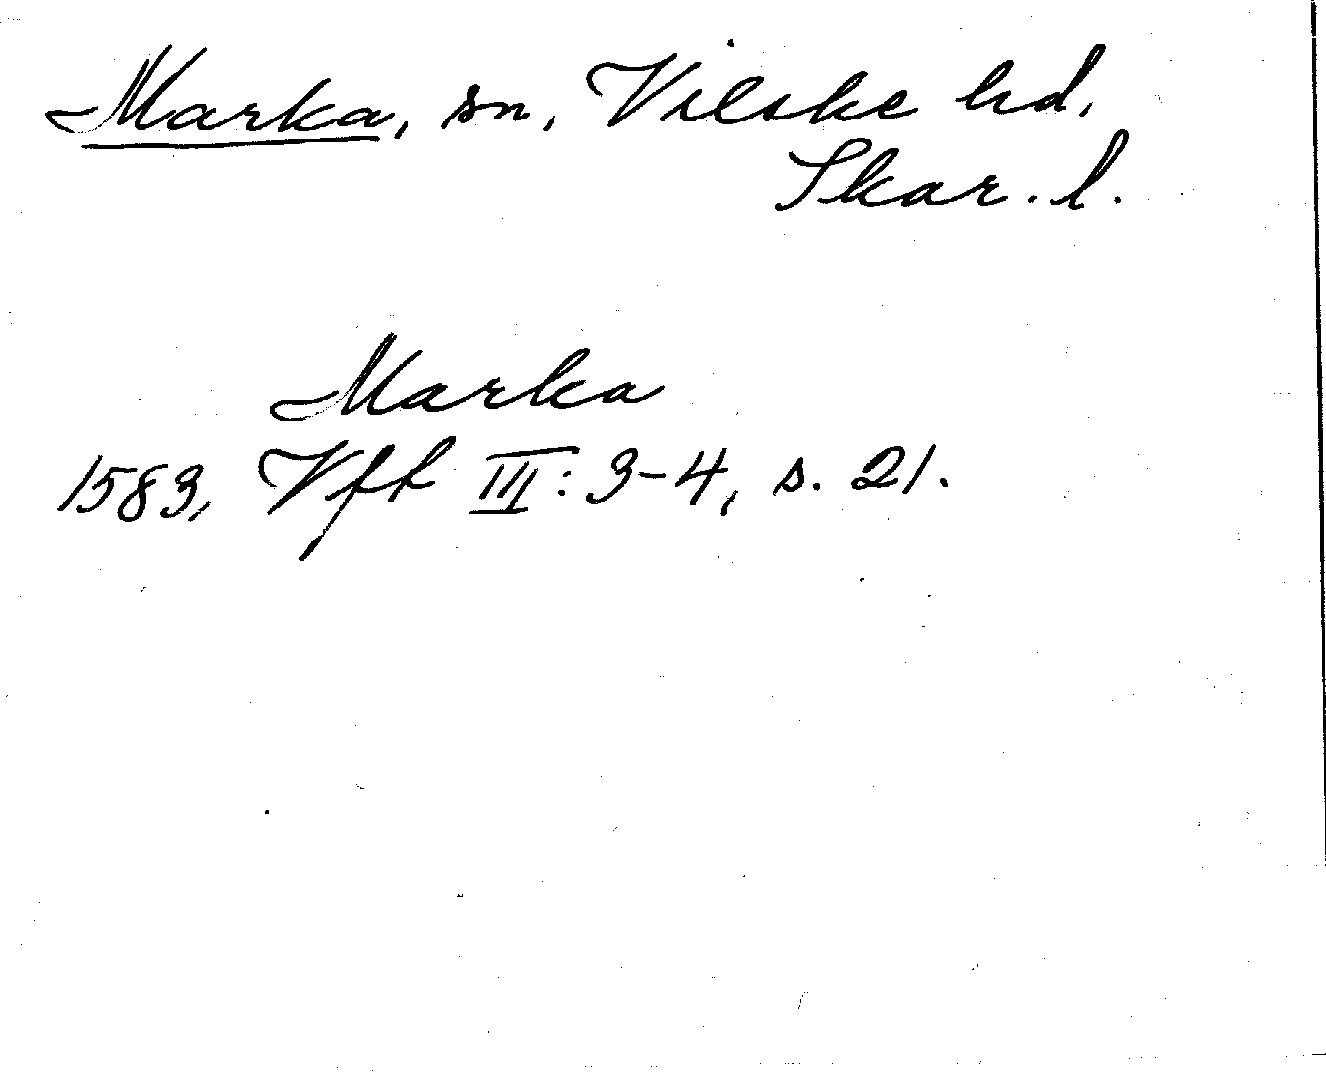 Marka, sn, Vilske hd,
Skar. l.
Marka
1583, Vft III: 3-4, s. 21.